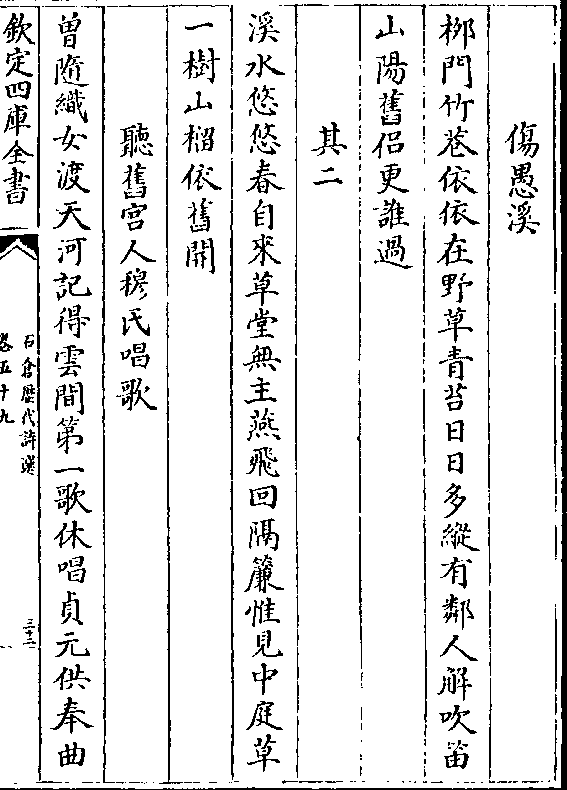 傷愚溪
栁門竹巷依依在野草青苔日日多縱有鄰人解吹笛
山陽舊侣更誰過
其二
溪水悠悠春自來草堂無主燕飛回隔簾惟見中庭草
一樹山榴依舊開
聽舊宫人穆氏唱歌
曽隨織女渡天河記得雲間第一歌休唱貞元供奉曲
欽定四庫全書
石倉歷代詩選
卷五十九
三十二